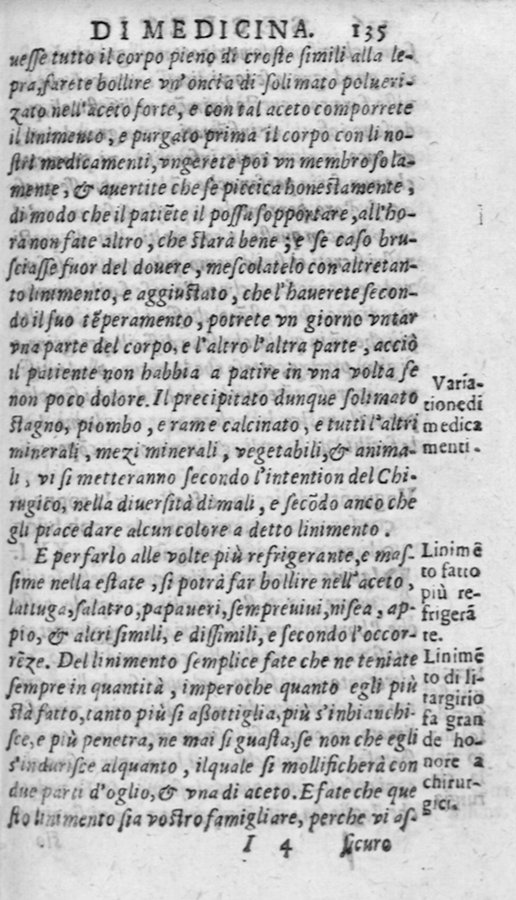 DI MEDICINA. 135
uesse tutto il corpo pieno di croste simili alla le-
pra, farete bollire vn'oncia di solimato polueri-
zato nell'aceto forte, e con tal aceto comporrete
il linimento, e purgato prima il corpo con li no-
stri medicamenti, vngerete poi vn membro sola-
mente, & auertite che se piccica honestamente,
di modo che il patiẽte il possa sopportare, all'ho-
ra non fate altro, che starà bene; e se caso bru-
sciasse fuor del douere, mescolatelo con altretan-
to linimento, e aggiustato, che l'hauerete secon-
do il suo tẽperamento, potrete vn giorno vntar
vna parte del corpo, e l'altro l'altra parte, acciò
il patiente non habbia a patire in vna volta se
non poco dolore. Il precipitato dunque solimato
stagno, piombo, e rame calcinato, e tutti l'altri
minerali, mezi minerali, vegetabili, & anima-
li, vi si metteranno secondo l'intention del Chi-
rugico, nella diuersità di mali, e secõdo anco che
gli piace dare alcun colore a detto linimento.
Varia-
tione di
medica
menti.
E per farlo alle volte più refrigerante, e mas-
sime nella estate, si potrà far bollire nell'aceto,
lattuga, salatro, papaueri, sempreuiui, nisea, ap-
pio, & altri simili, e dissimili, e secondo l'occor-
rẽze. Del linimento semplice fate che ne teniate
sempre in quantità, imperoche quanto egli più
stà fatto, tanto più si assottiglia, più s'inbianchi-
sce, e più penetra, ne mai si guasta, se non che egli
s'indurisce alquanto, ilquale si mollificherà con
due parti d'oglio, & vna di aceto. E fate che que
sto linimento sia vostro famigliare, perche vi as-
Linimẽ
to fatto
più re-
frigerã
te.
Linimẽ
to di li-
targirio
fa gran
de ho-
nore a
chirur-
gici.
I 4 sicuro